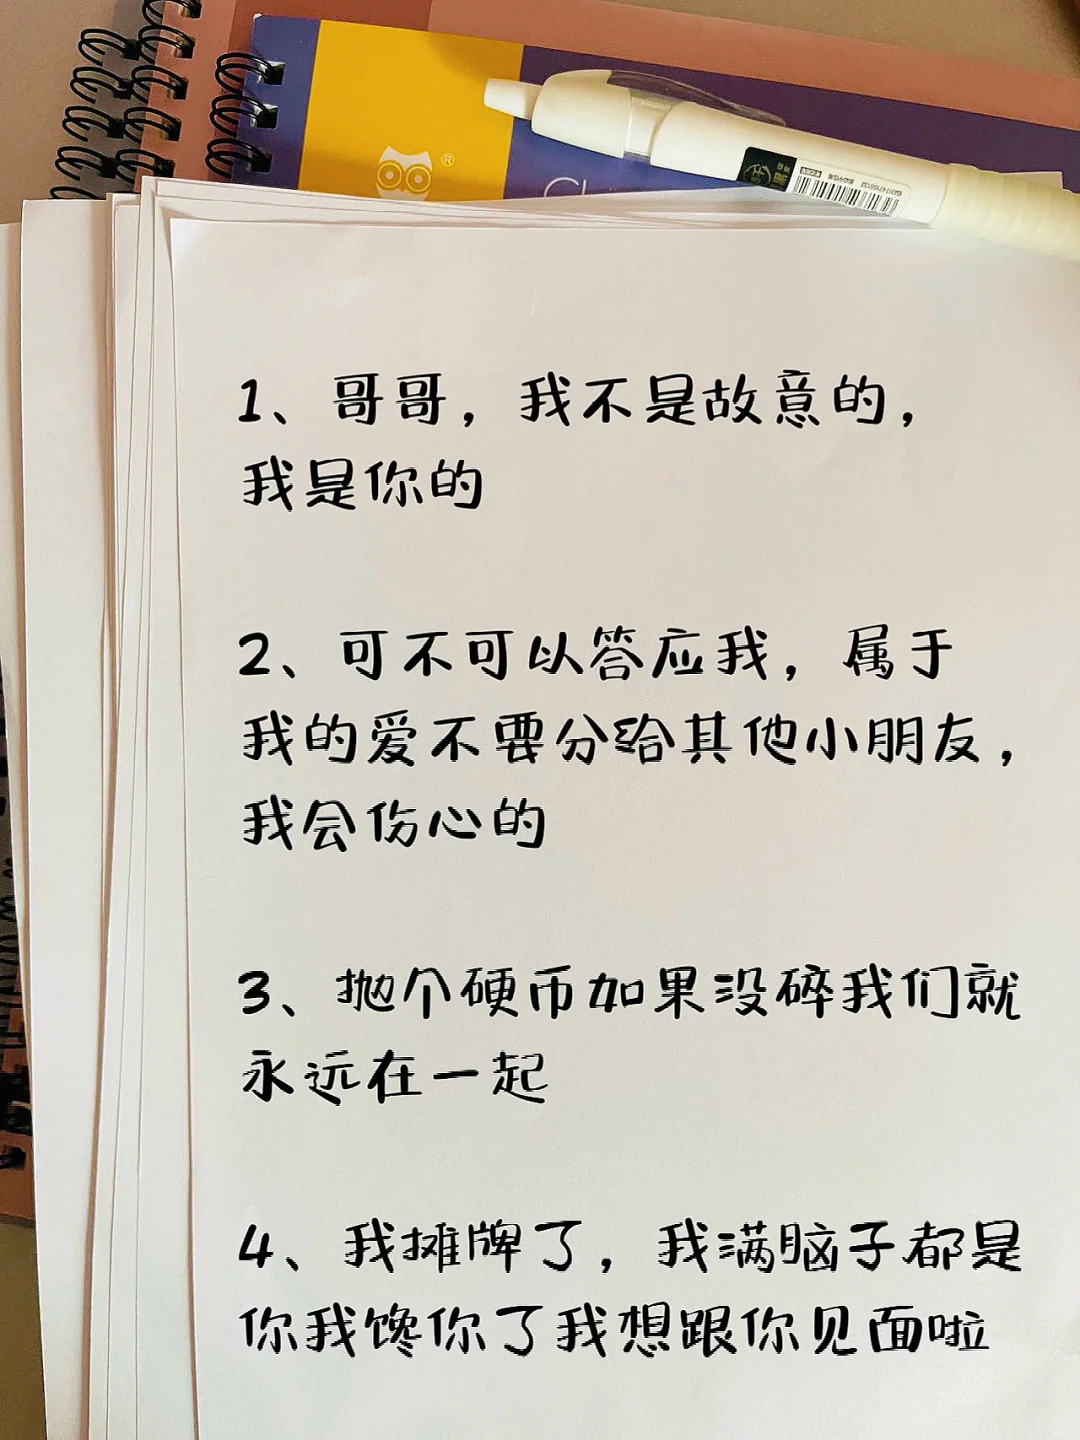 ®
CL
1、哥哥，我不是故意的，
我是你的
2、可不可以答应我，属于
我的爱不要分给其他小朋友，
我会伤心的
3、抛个硬币如果没碎我们就
永远在一起
4、我摊牌了，我满脑子都是
你我馋你了我想跟你见面啦